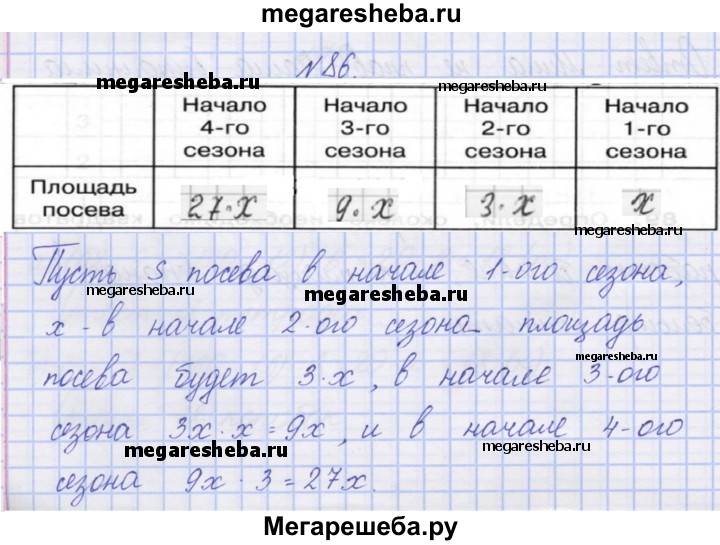 megaresheba.ru
N 86.
megaresheba.ru
megaresheba.ru
Начало 4-го сезона Начало 3-го сезона Начало 2-го сезона Начало 1-го сезона
Площадь посева 27·x 9·x 3·x x
megaresheba.ru
Пусть S посева в начале 1-ого сезона,
megaresheba.ru
megaresheba.ru
x - в начале 2-ого сезона площадь
megaresheba.ru
посева будет 3·x, в начале 3-ого
сезона 3x·x=9x, и в начале 4-ого
megaresheba.ru
megaresheba.ru
сезона 9x·3=27x.
Мегарешеба.ру